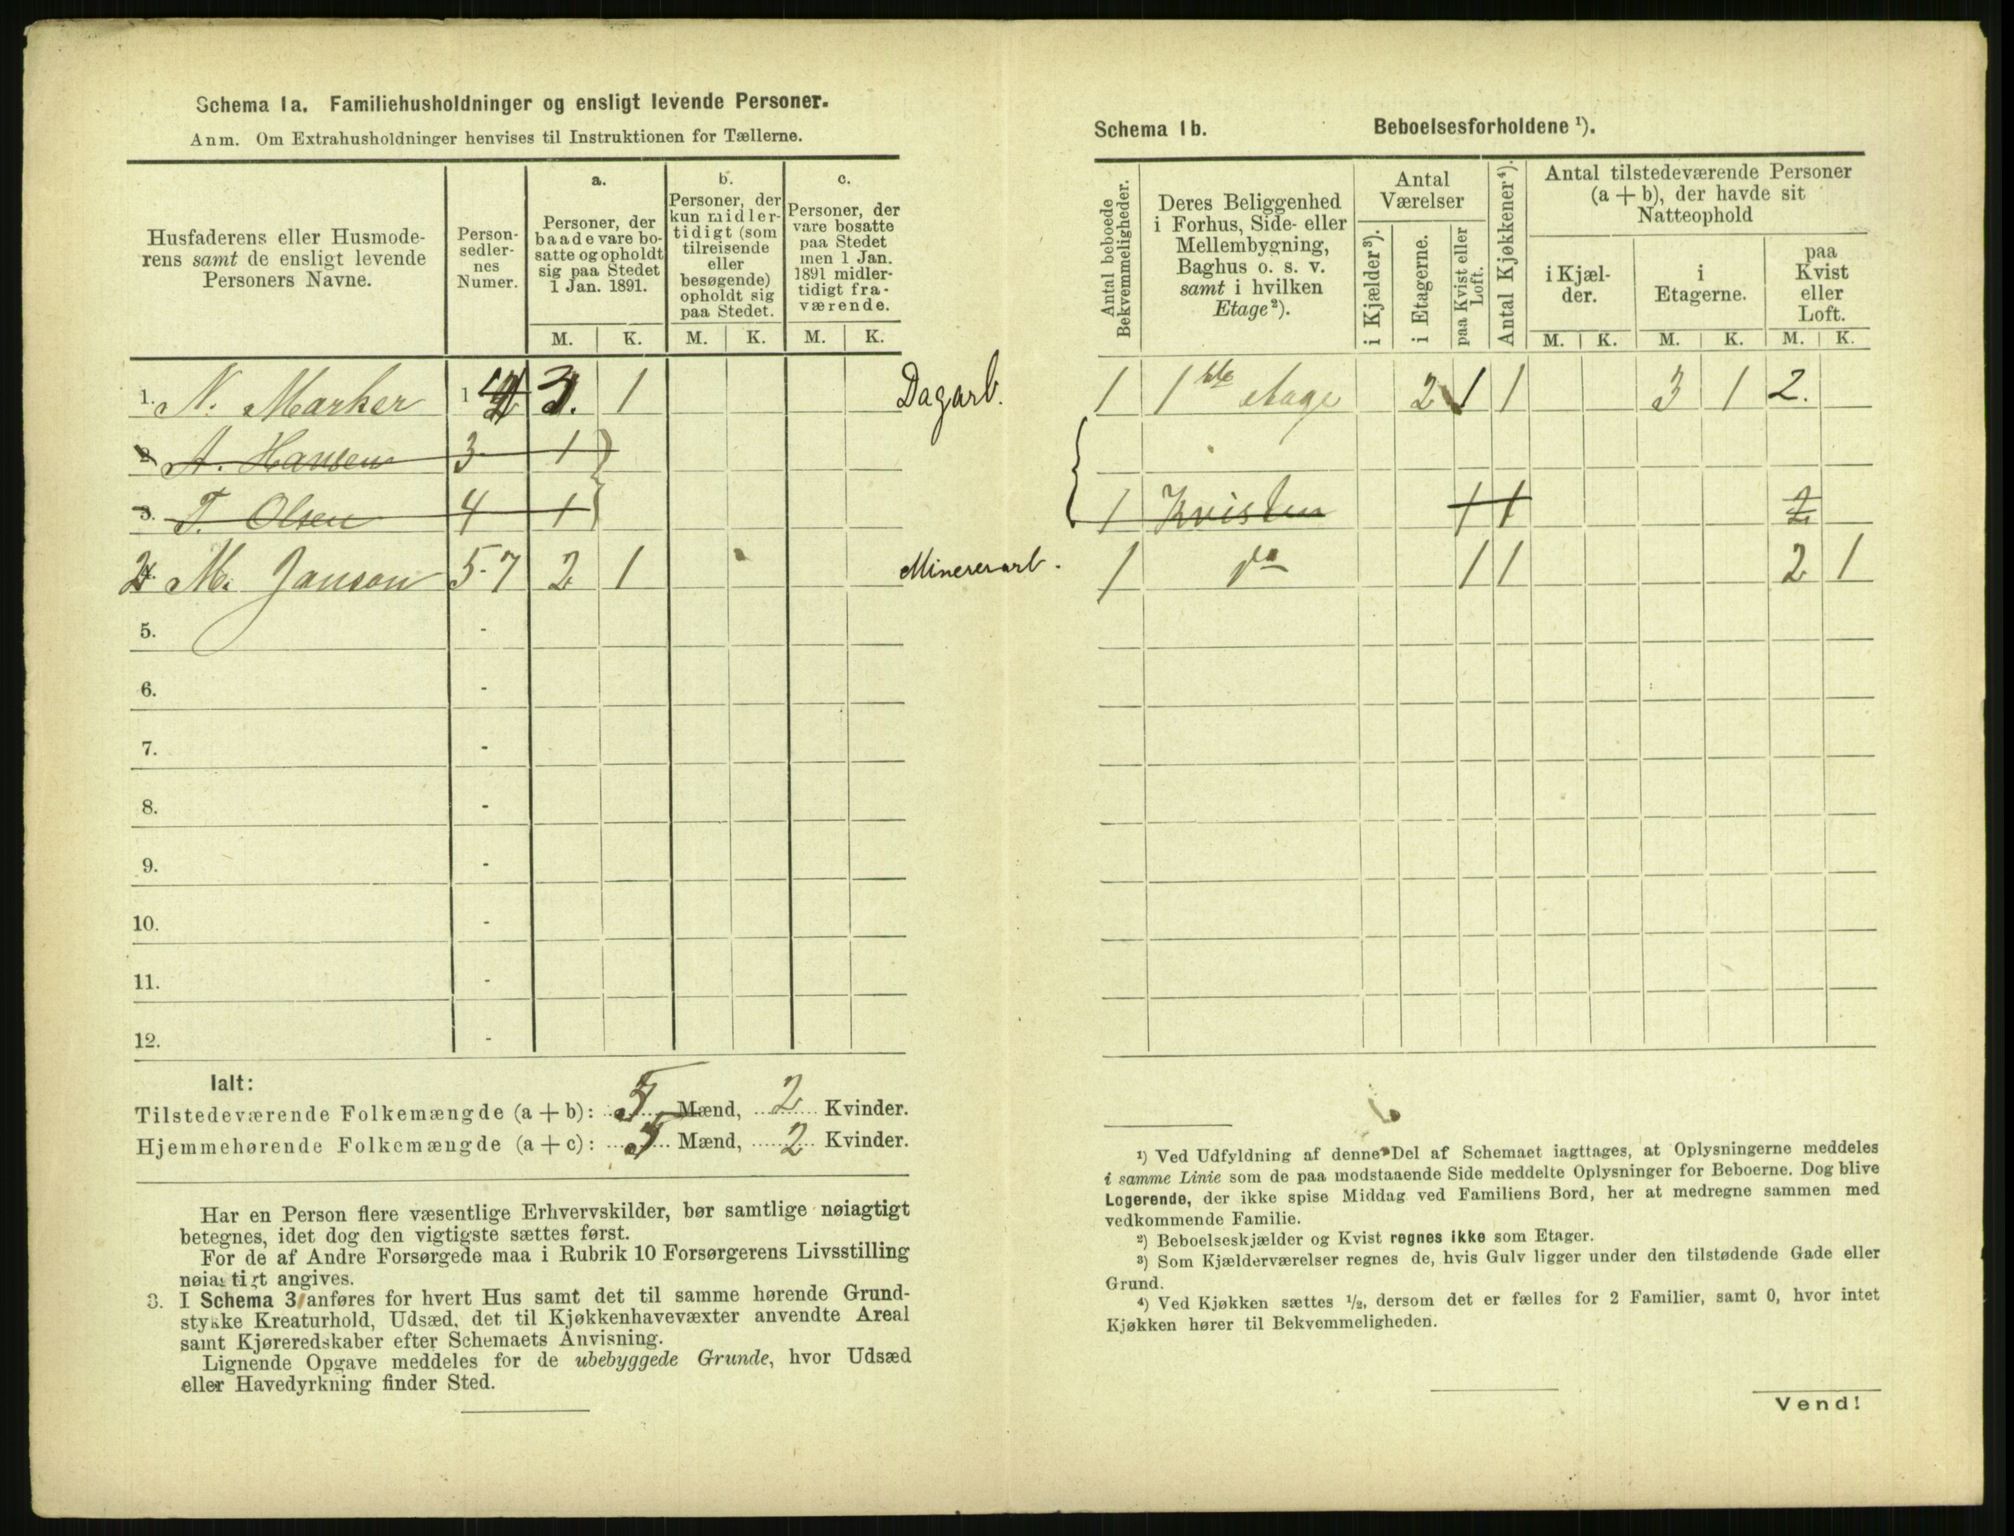 Schema 1a. Familiehusholdninger og ensligt levende Personer.
Anm. Om Extrahusholdninger henvises til Instruktionen for Tællerne.
Husfaderens eller Husmoderens samt de ensligt levende Personers Navne.
Personsedlernes Numer.
a.
Personer, der baade vare bosatte og opholdt sig paa Stedet 1 Jan. 1891.
b.
Personer, der kun midlertidigt (som tilreisende eller besøgende) opholdt sig paa Stedet.
c.
Personer, der vare bosatte paa Stedet men 1 Jan. 1891 midlertidigt fraværende.
M. K. M. K. M. K.
1. N. Marker 1 3. 1 Dagarb.
2 A. Hansen 3 1
3. T. Olsen 4 1
M. Janson 5-7 2 1 Minererarb.
5. -
6. -
7. -
8. -
9. -
10. -
11. -
12. -
Ialt:
Tilstedeværende Folkemængde (a + b): 5 Mænd, 2 Kvinder.
Hjemmehørende Folkemængde (a + c): 5 Mænd, 2 Kvinder.
Har en Person flere væsentlige Erhvervskilder, bør samtlige nøiagtigt
betegnes, idet dog den vigtigste sættes først.
For de af Andre Forsørgede maa i Rubrik 10 Forsørgerens Livsstilling
nøiagtigt angives.
3. I Schema 3 anføres for hvert Hus samt det til samme hørende Grund-
stykke Kreaturhold, Udsæd, det til Kjøkkenhavevæxter anvendte Areal
samt Kjøreredskaber efter Schemaets Anvisning.
Lignende Opgave meddeles for de ubebyggede Grunde, hvor Udsæd
eller Havedyrkning finder Sted.
Schema 1b. Beboelsesforholdene ¹).
Antal beboede Bekvemmeligheder.
Deres Beliggenhed i Forhus, Side- eller Mellembygning, Baghus o. s. v. samt i hvilken Etage²).
Antal Værelser
i Kjælder³).
i Etagerne.
paa Kvist eller Loft.
Antal Kjøkkener⁴).
Antal tilstedeværende Personer (a + b), der havde sit Natteophold
i Kjælder.
i Etagerne.
paa Kvist eller Loft.
M. K. M. K. M. K.
1 1ste Etage 2 1 1 3 1 2.
1 Kvisten 1 1 2
1 do 1 1 2 1
¹) Ved Udfyldning af denne Del af Schemaet iagttages, at Oplysningerne meddeles
i samme Linie som de paa modstaaende Side meddelte Oplysninger for Beboerne. Dog blive
Logerende, der ikke spise Middag ved Familiens Bord, her at medregne sammen med
vedkommende Familie.
²) Beboelseskjælder og Kvist regnes ikke som Etager.
³) Som Kjælderværelser regnes de, hvis Gulv ligger under den tilstødende Gade eller
Grund.
⁴) Ved Kjøkken sættes ½, dersom det er fælles for 2 Familier, samt 0, hvor intet
Kjøkken hører til Bekvemmeligheden.
Vend!